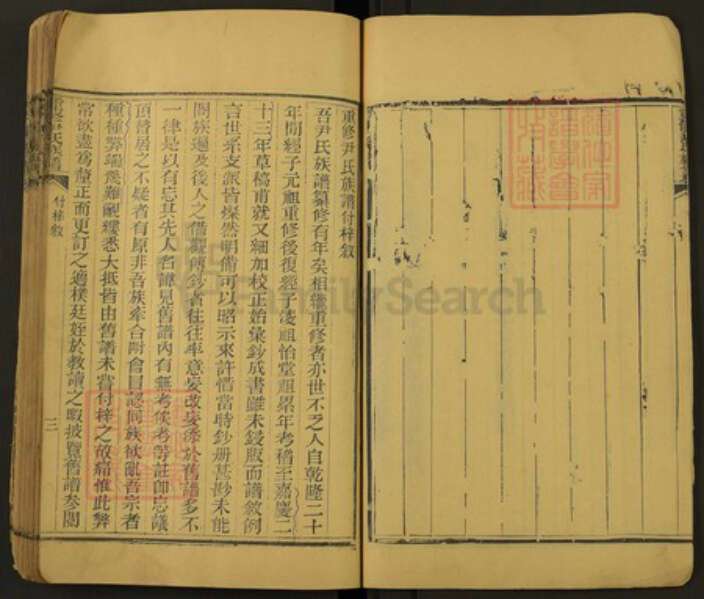 重修尹氏族譜付梓敘
吾尹氏族譜纂修有年矣相繼重修者亦世不乏人自乾隆二十
年間經子元祖重修後復經子淩祖怡堂祖累年考稽至嘉慶二
十三年草稿甫就又細加校正始彙鈔成書雖未鋟版而譜敘例
言世系支派皆燦然明備可以昭示來許惜當時鈔册甚尠未能
閤族遍及後人之借觀傳鈔者往往率意妄改妄添於舊譜多不
一律是以有忘其先人名諱見舊譜內有無考俟考等註卽忘議
頂替居之不疑者有原非吾族牽合附會冒認同族欲亂吾宗者
種種弊端誠難覼縷悉大抵皆由舊譜未嘗付梓之故緒惟此弊
常欲盡為釐正而更訂之適樸廷姪於教讀之暇披覽舊譜參閱
尹氏族譜
付梓敘
三
FamilySearch